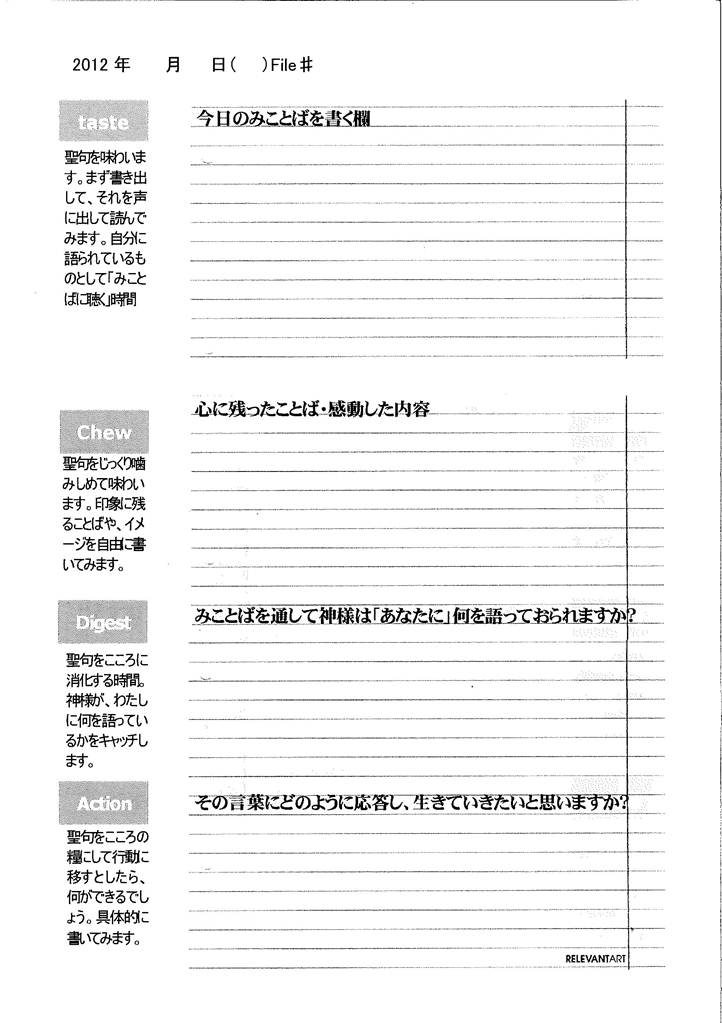 2012 年　　月　　日(　　)File♯
taste
今日のみことばを書く欄
聖句を味わいま
す。まず書き出
して、それを声
に出して読んで
みます。自分に
語られているも
のとして「みこと
ばに聴く」時間
Chew
心に残ったことば・感動した内容
聖句をじっくり噛
みしめて味わい
ます。印象に残
ることばや、イメ
ージを自由に書
いてみます。
Digest
みことばを通して神様は「あなたに」何を語っておられますか?
聖句をこころに
消化する時間。
神様が、わたし
に何を語ってい
るかをキャッチし
ます。
Action
その言葉にどのように応答し、生きていきたいと思いますか?
聖句をこころの
糧にして行動に
移すとしたら、
何ができるでし
ょう。具体的に
書いてみます。
RELEVANTART